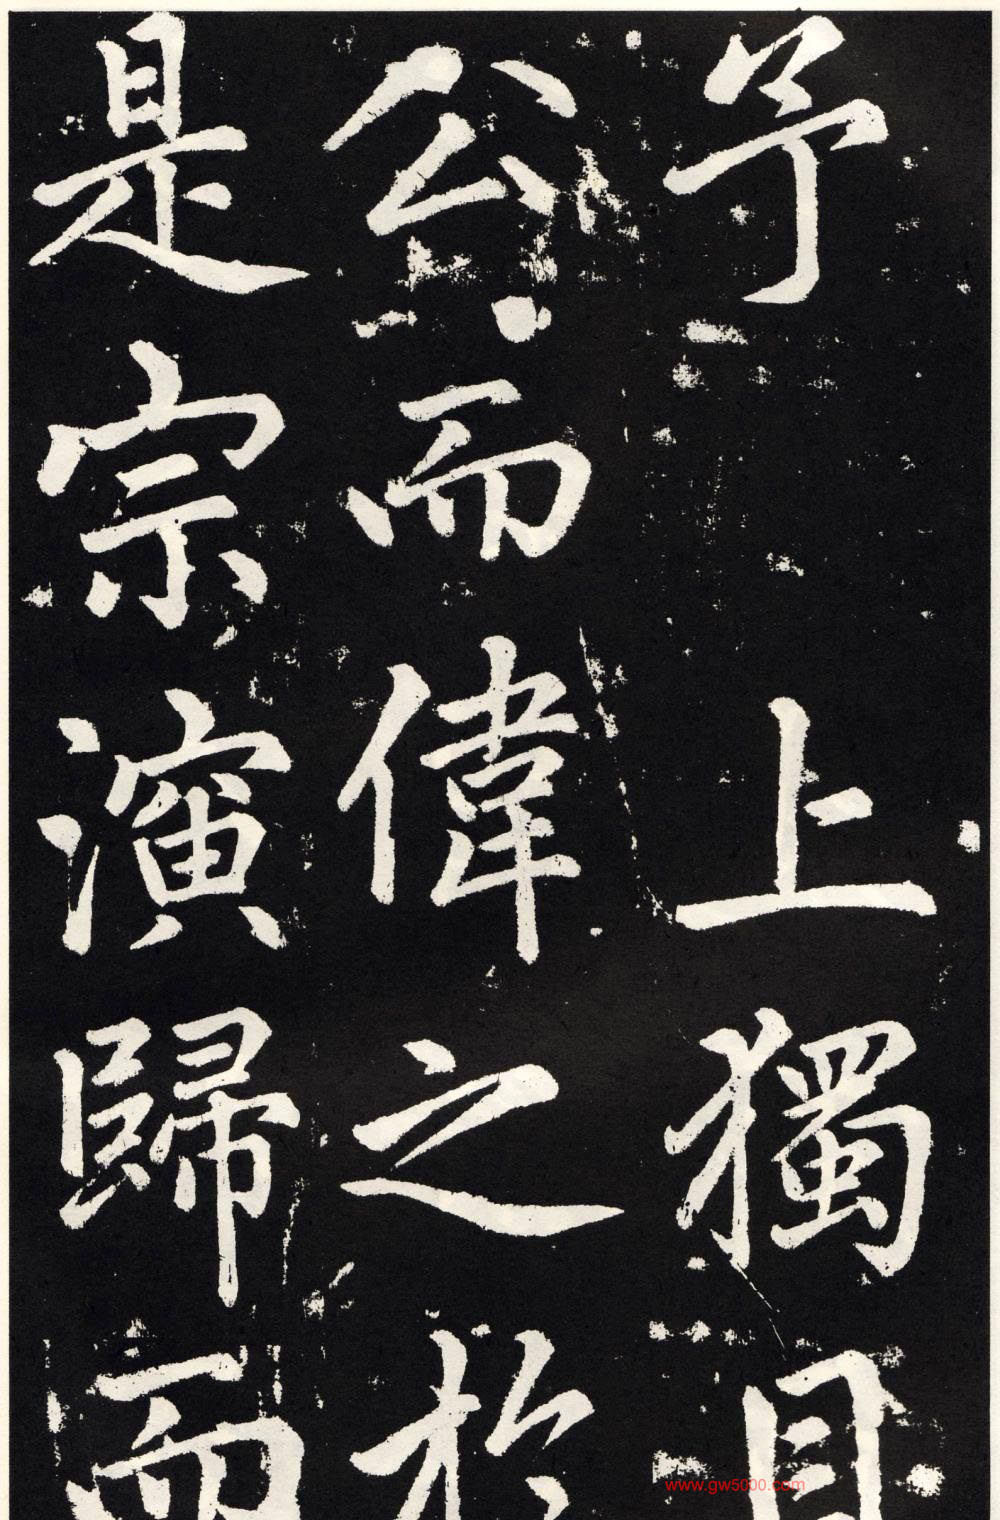 予 上獨目
公而偉之於
是宗演歸而
www.gw5000.com